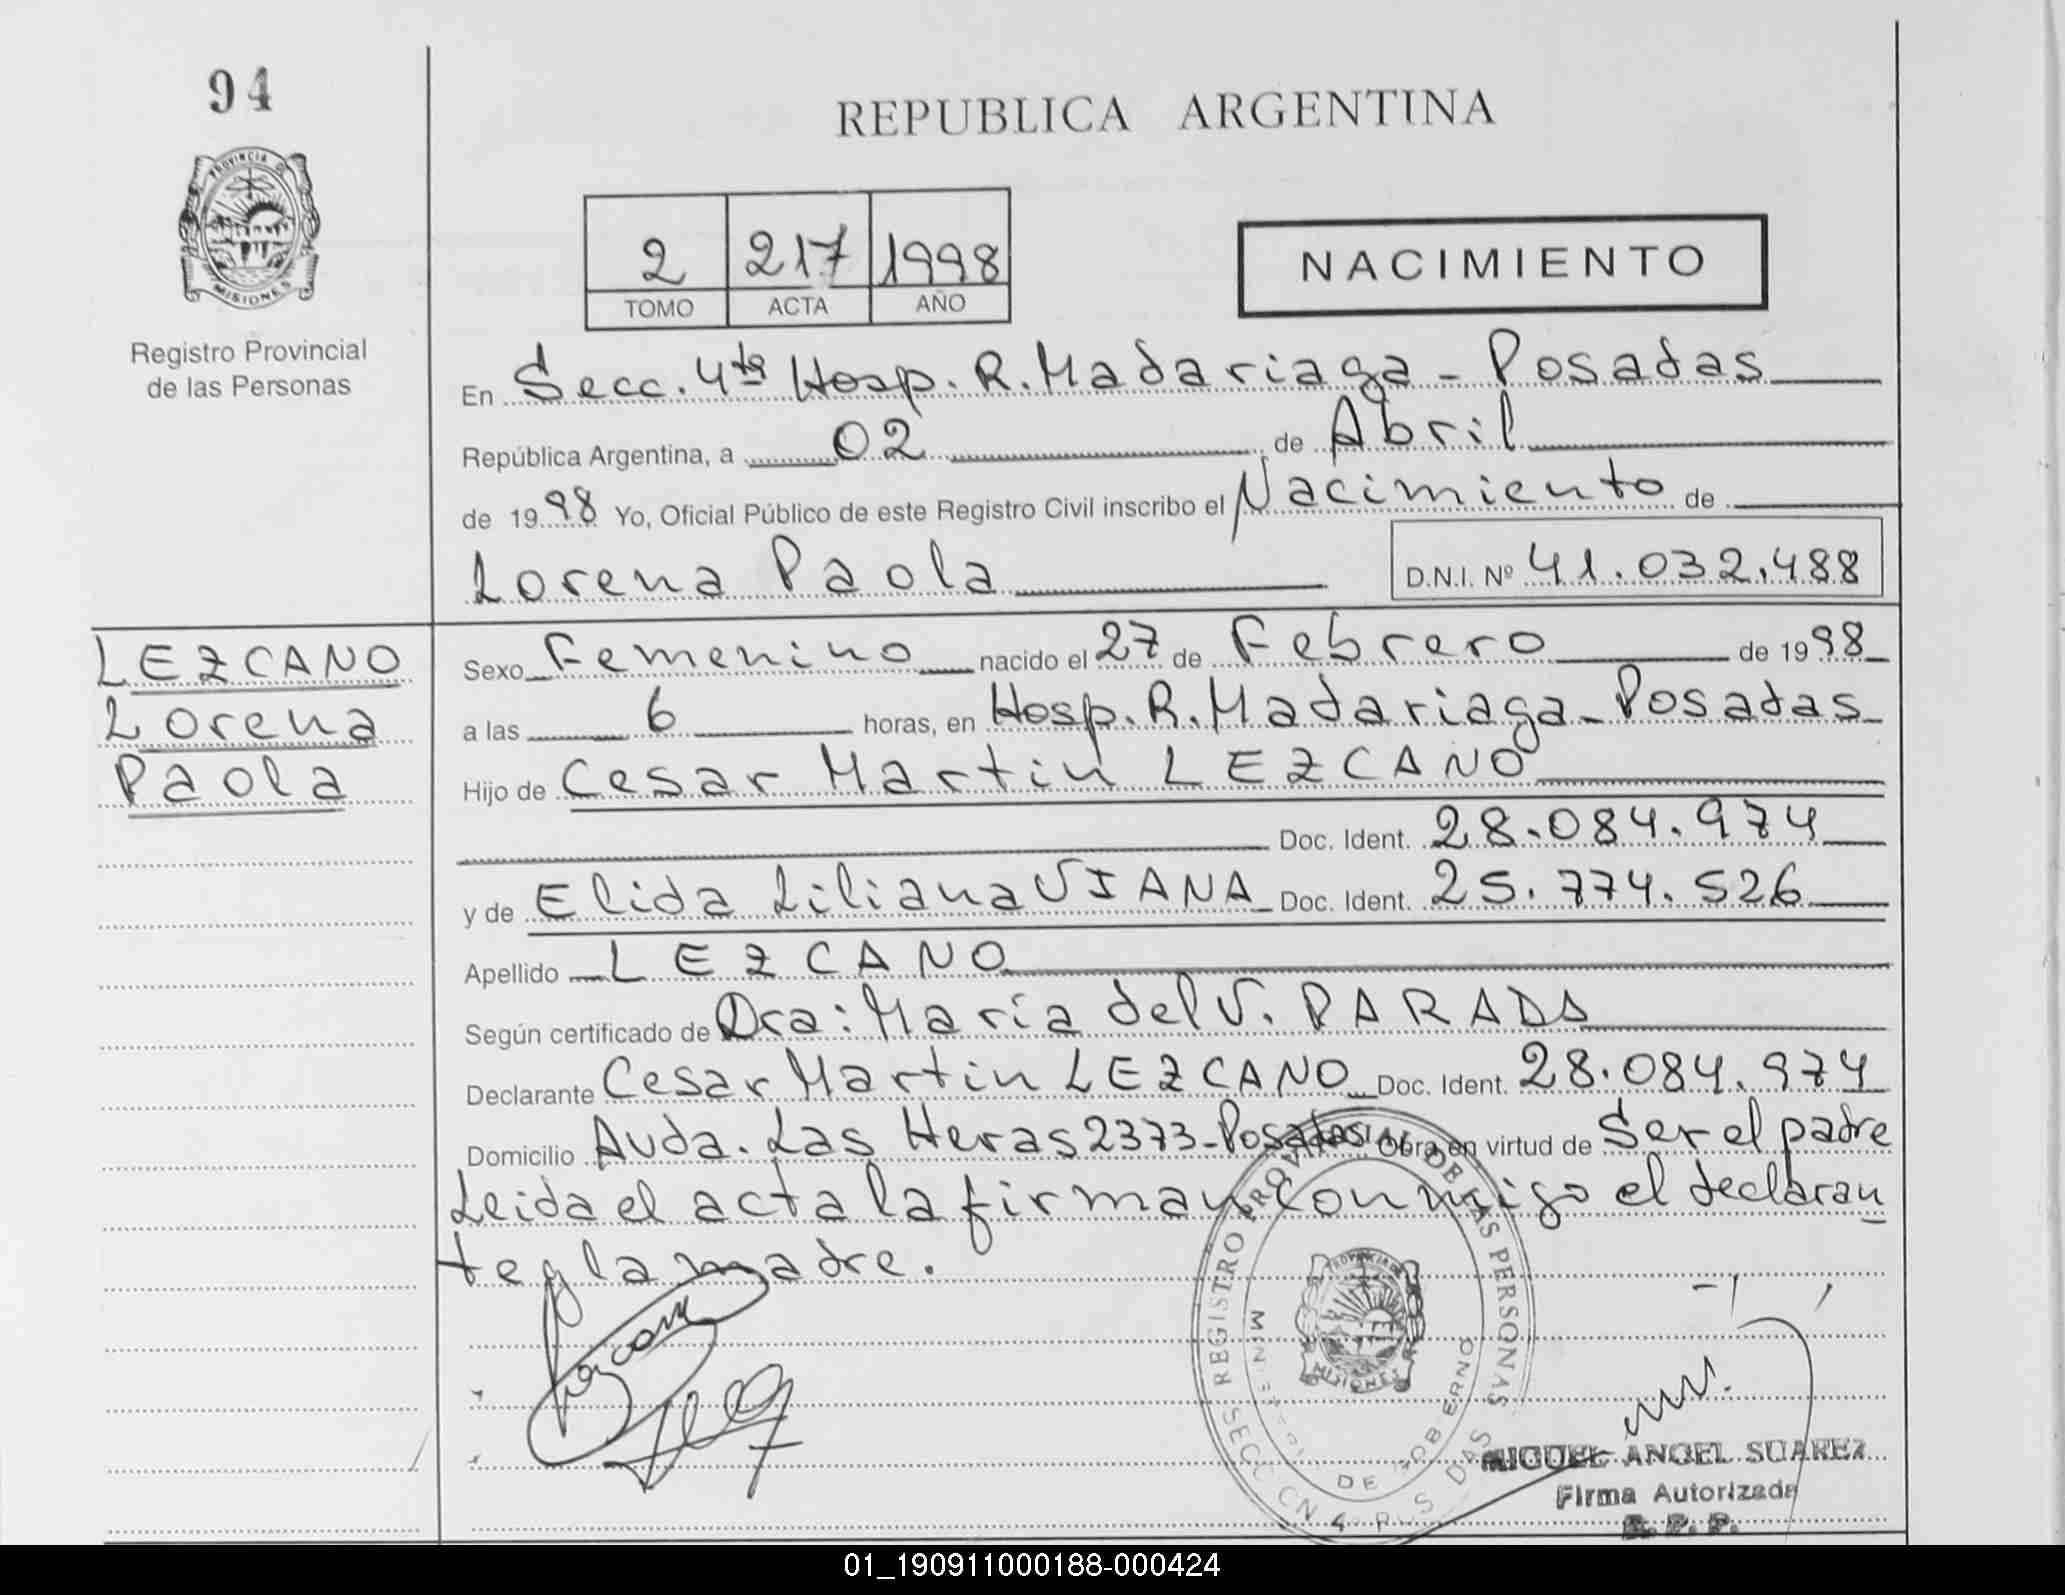 94
REPUBLICA ARGENTINA
PROVINCIA DE
MISIONES
2 217 1998
TOMO ACTA AÑO
NACIMIENTO
Registro Provincial
de las Personas
En Secc. 4ta Hosp. R. Madariaga - Posadas
República Argentina, a 02 de Abril
de 1998 Yo, Oficial Público de este Registro Civil inscribo el Nacimiento de
Lorena Paola D.N.I. Nº 41.032.488
LEZCANO
Lorena
Paola
Sexo Femenino nacido el 27 de Febrero de 1998
a las 6 horas, en Hosp. R. Madariaga - Posadas
Hijo de Cesar Martin LEZCANO
Doc. Ident. 28.084.974
y de Elida Liliana VIANA Doc. Ident. 25.774.526
Apellido LEZCANO
Según certificado de Dra: Maria del V. PARADA
Declarante Cesar Martin LEZCANO Doc. Ident. 28.084.974
Domicilio Avda. Las Heras 2373 - Posadas Obra en virtud de Ser el padre
Leida el acta la firman conmigo el declaran
te y la madre.
REGISTRO PROVINCIAL DE LAS PERSONAS
DE GOBIERNO
MISIONES
MIGUEL ANGEL SUAREZ
Firma Autorizada
R. P. P.
01_190911000188-000424